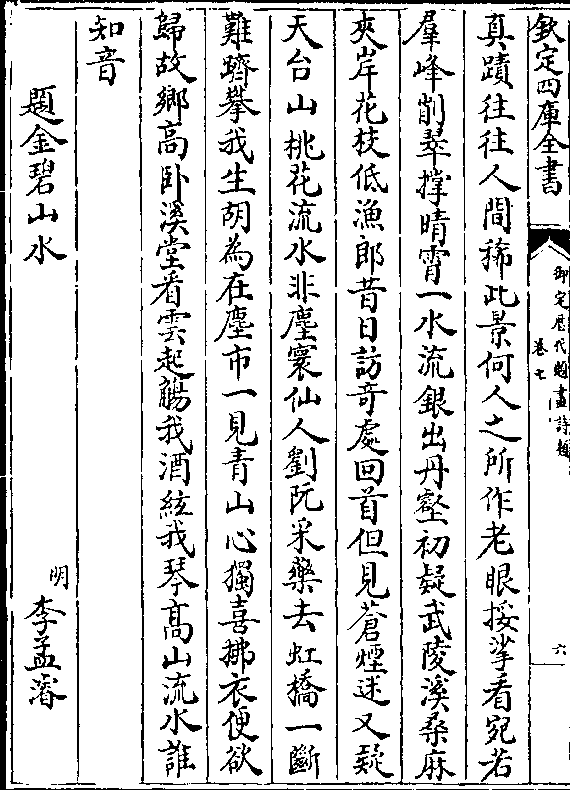 欽定四庫全書
御定歴代題畫詩類
卷七
六
真蹟往往人間稀此景何人之所作老眼挼挲看宛若
羣峰削翠撑晴霄一水流銀出丹壑初疑武陵溪桑麻
夾岸花枝低漁郎昔日訪奇處回首但見蒼煙迷又疑
天台山桃花流水非塵寰仙人劉阮采藥去虹橋一斷
難躋攀我生胡為在塵市一見青山心獨喜拂衣便欲
歸故鄉高卧溪堂看雲起觴我酒絃我琴高山流水誰
知音
題金碧山水
明
李孟濬